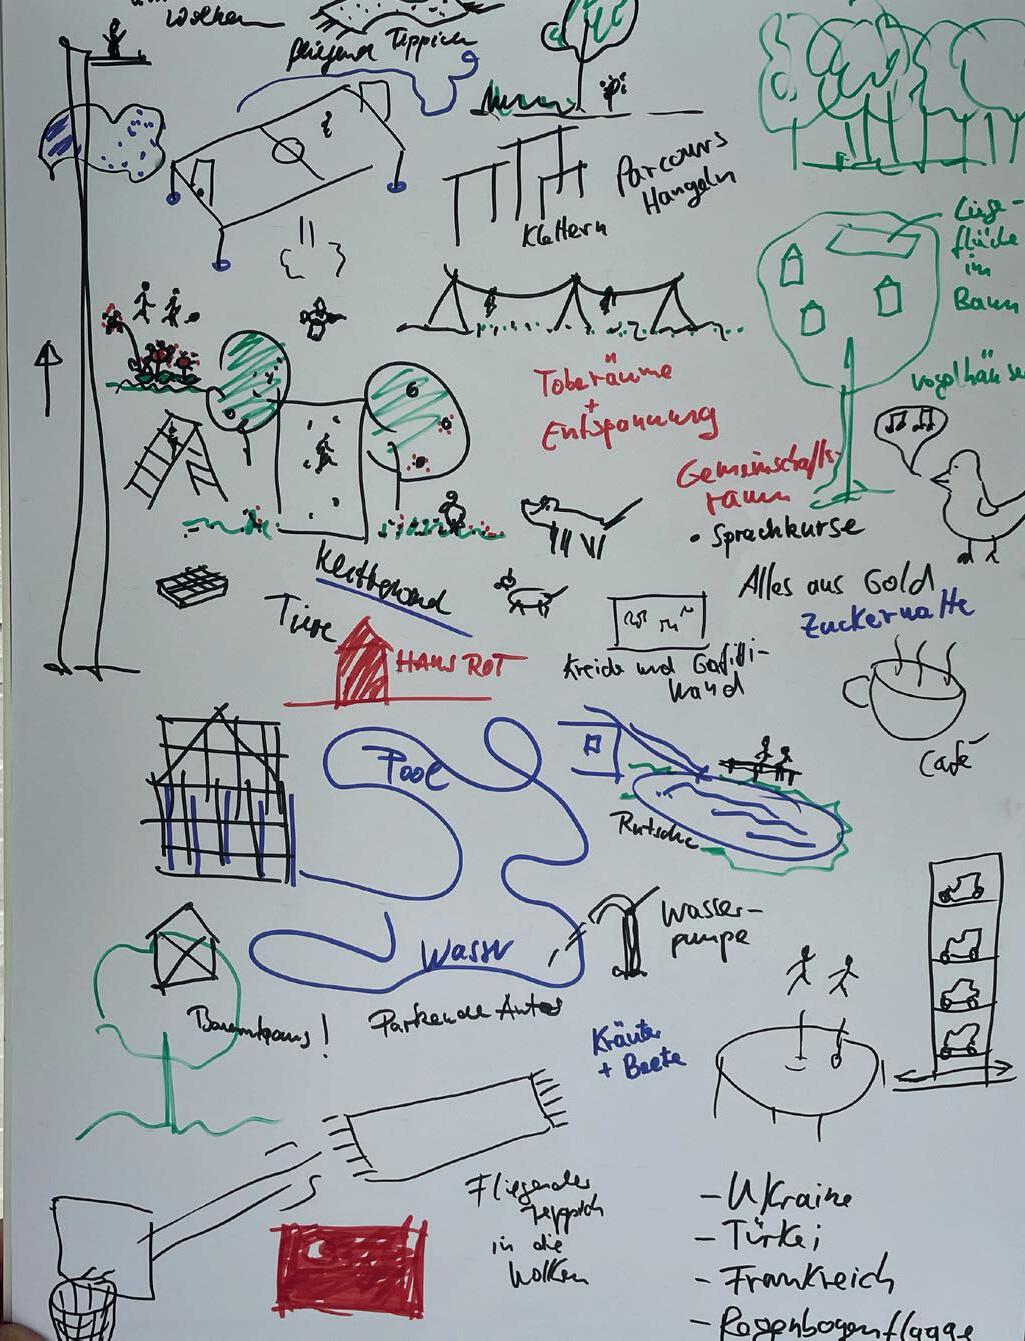 Wolken
fliegend Teppich
Parcours
Hangeln
Klettern
Liege-
fläche
im
Baum
Vogelhäuser
Toberäume
+
Entspannung
Gemeinschafts-
raum
• Sprachkurse
Kletterwand
Tiere
Alles aus Gold
Zuckerwatte
HAUS ROT
Kreide und Grafiti-
wand
Café
Pool
Rutsche
Wasser-
pumpe
Wasser
Baumhaus!
Parkende Autos
Kräuter
+ Beete
Fliegender
Teppich
in die
Wolken
- Ukraine
- Türkei
- Frankreich
- Regenbogenflagge